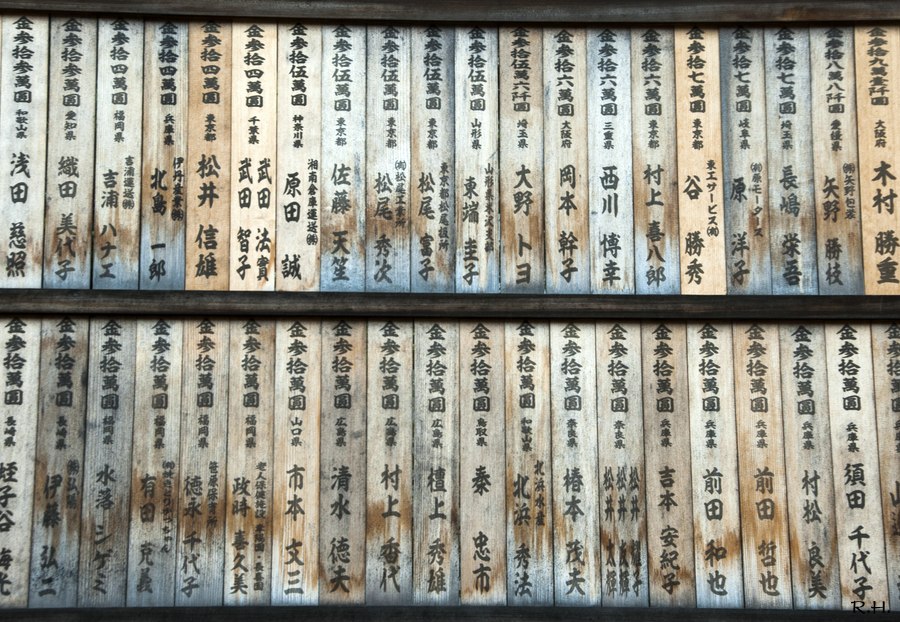 金参拾九萬壱阡圓 大阪府 木村 勝重
金参拾八萬八阡圓 愛媛県 矢野 勝枝
金参拾七萬圓 埼玉県 長嶋 栄吾
金参拾七萬圓 岐阜県 ㈲原モータース 原 洋子
金参拾七萬圓 東京都 東工サービス㈲ 谷 勝秀
金参拾六萬圓 東京都 村上 喜八郎
金参拾六萬圓 三重県 西川 博幸
金参拾六萬圓 大阪府 岡本 幹子
金参拾伍萬六阡圓 埼玉県 大野 トヨ
金参拾伍萬圓 山形県 東端 圭子
金参拾伍萬圓 東京都 松尾 富子
金参拾伍萬圓 東京都 ㈲松尾工業所 松尾 秀次
金参拾伍萬圓 東京都 佐藤 天笙
金参拾伍萬圓 神奈川県 湘南倉庫運送㈱ 原田 誠
金参拾四萬圓 千葉県 武田 法實 武田 智子
金参拾四萬圓 東京都 松井 信雄
金参拾四萬圓 兵庫県 伊丹産業㈱ 北島 一郎
金参拾四萬圓 福岡県 吉浦運送㈱ 吉浦 ハナエ
金参拾参萬圓 愛知県 織田 美代子
金参拾参萬圓 和歌山県 浅田 慈照
金参拾萬圓
金参拾萬圓 兵庫県 須田 千代子
金参拾萬圓 兵庫県 村松 良美
金参拾萬圓 兵庫県 前田 哲也
金参拾萬圓 兵庫県 前田 和也
金参拾萬圓 兵庫県 吉本 安紀子
金参拾萬圓 奈良県 松井 松井 松井
金参拾萬圓 奈良県 椿本 茂夫
金参拾萬圓 和歌山県 北浜水産 北浜 秀法
金参拾萬圓 鳥取県 泰 忠市
金参拾萬圓 広島県 檀上 秀雄
金参拾萬圓 広島県 村上 香代
金参拾萬圓 広島県 清水 徳夫
金参拾萬圓 山口県 市本 文三
金参拾萬圓 福岡県 政時 喜久美
金参拾萬圓 福岡県 徳永 千代子
金参拾萬圓 福岡県 有田 克義
金参拾萬圓 福岡県 水落 シゲミ
金参拾萬圓 長崎県 伊藤 弘二
金参拾萬圓 長崎県 蛭子谷
R.H.